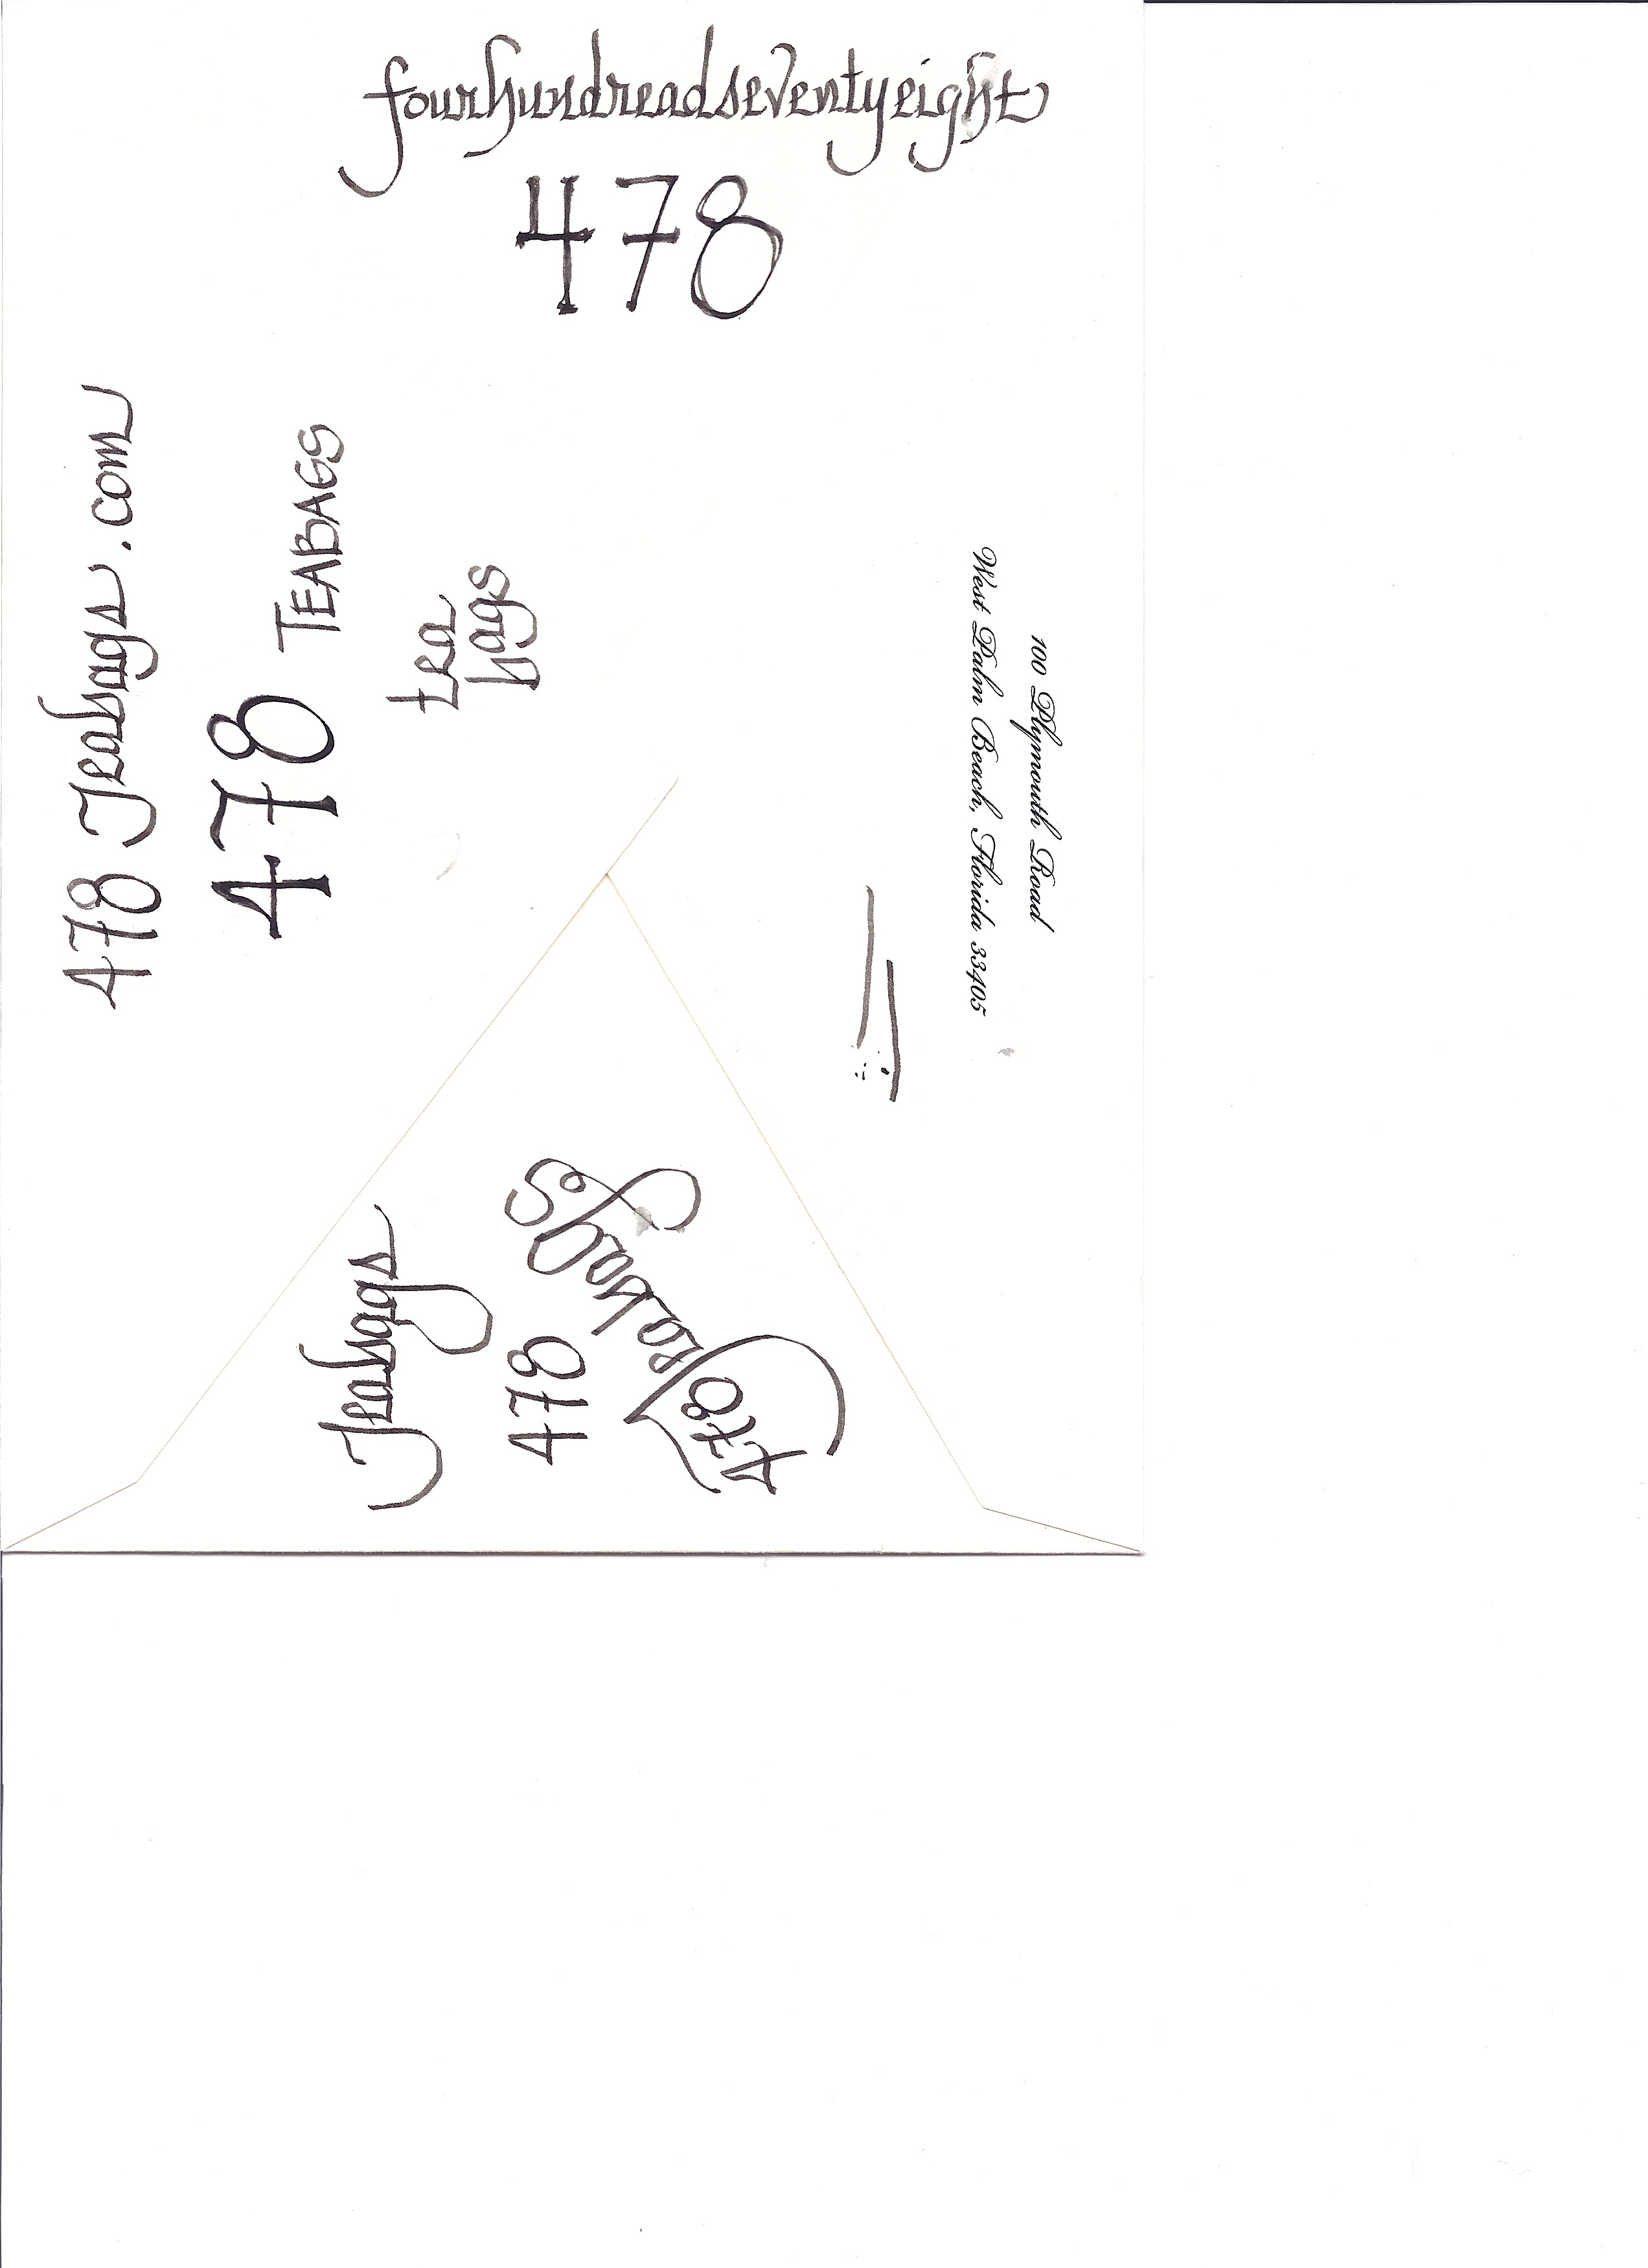 fourhundreadseventyeight
478
478 Teabags.com
478 TEABAGS
tea
bags
100 Plymouth Road
West Palm Beach, Florida 33405
Teabags
478
478 Teabags